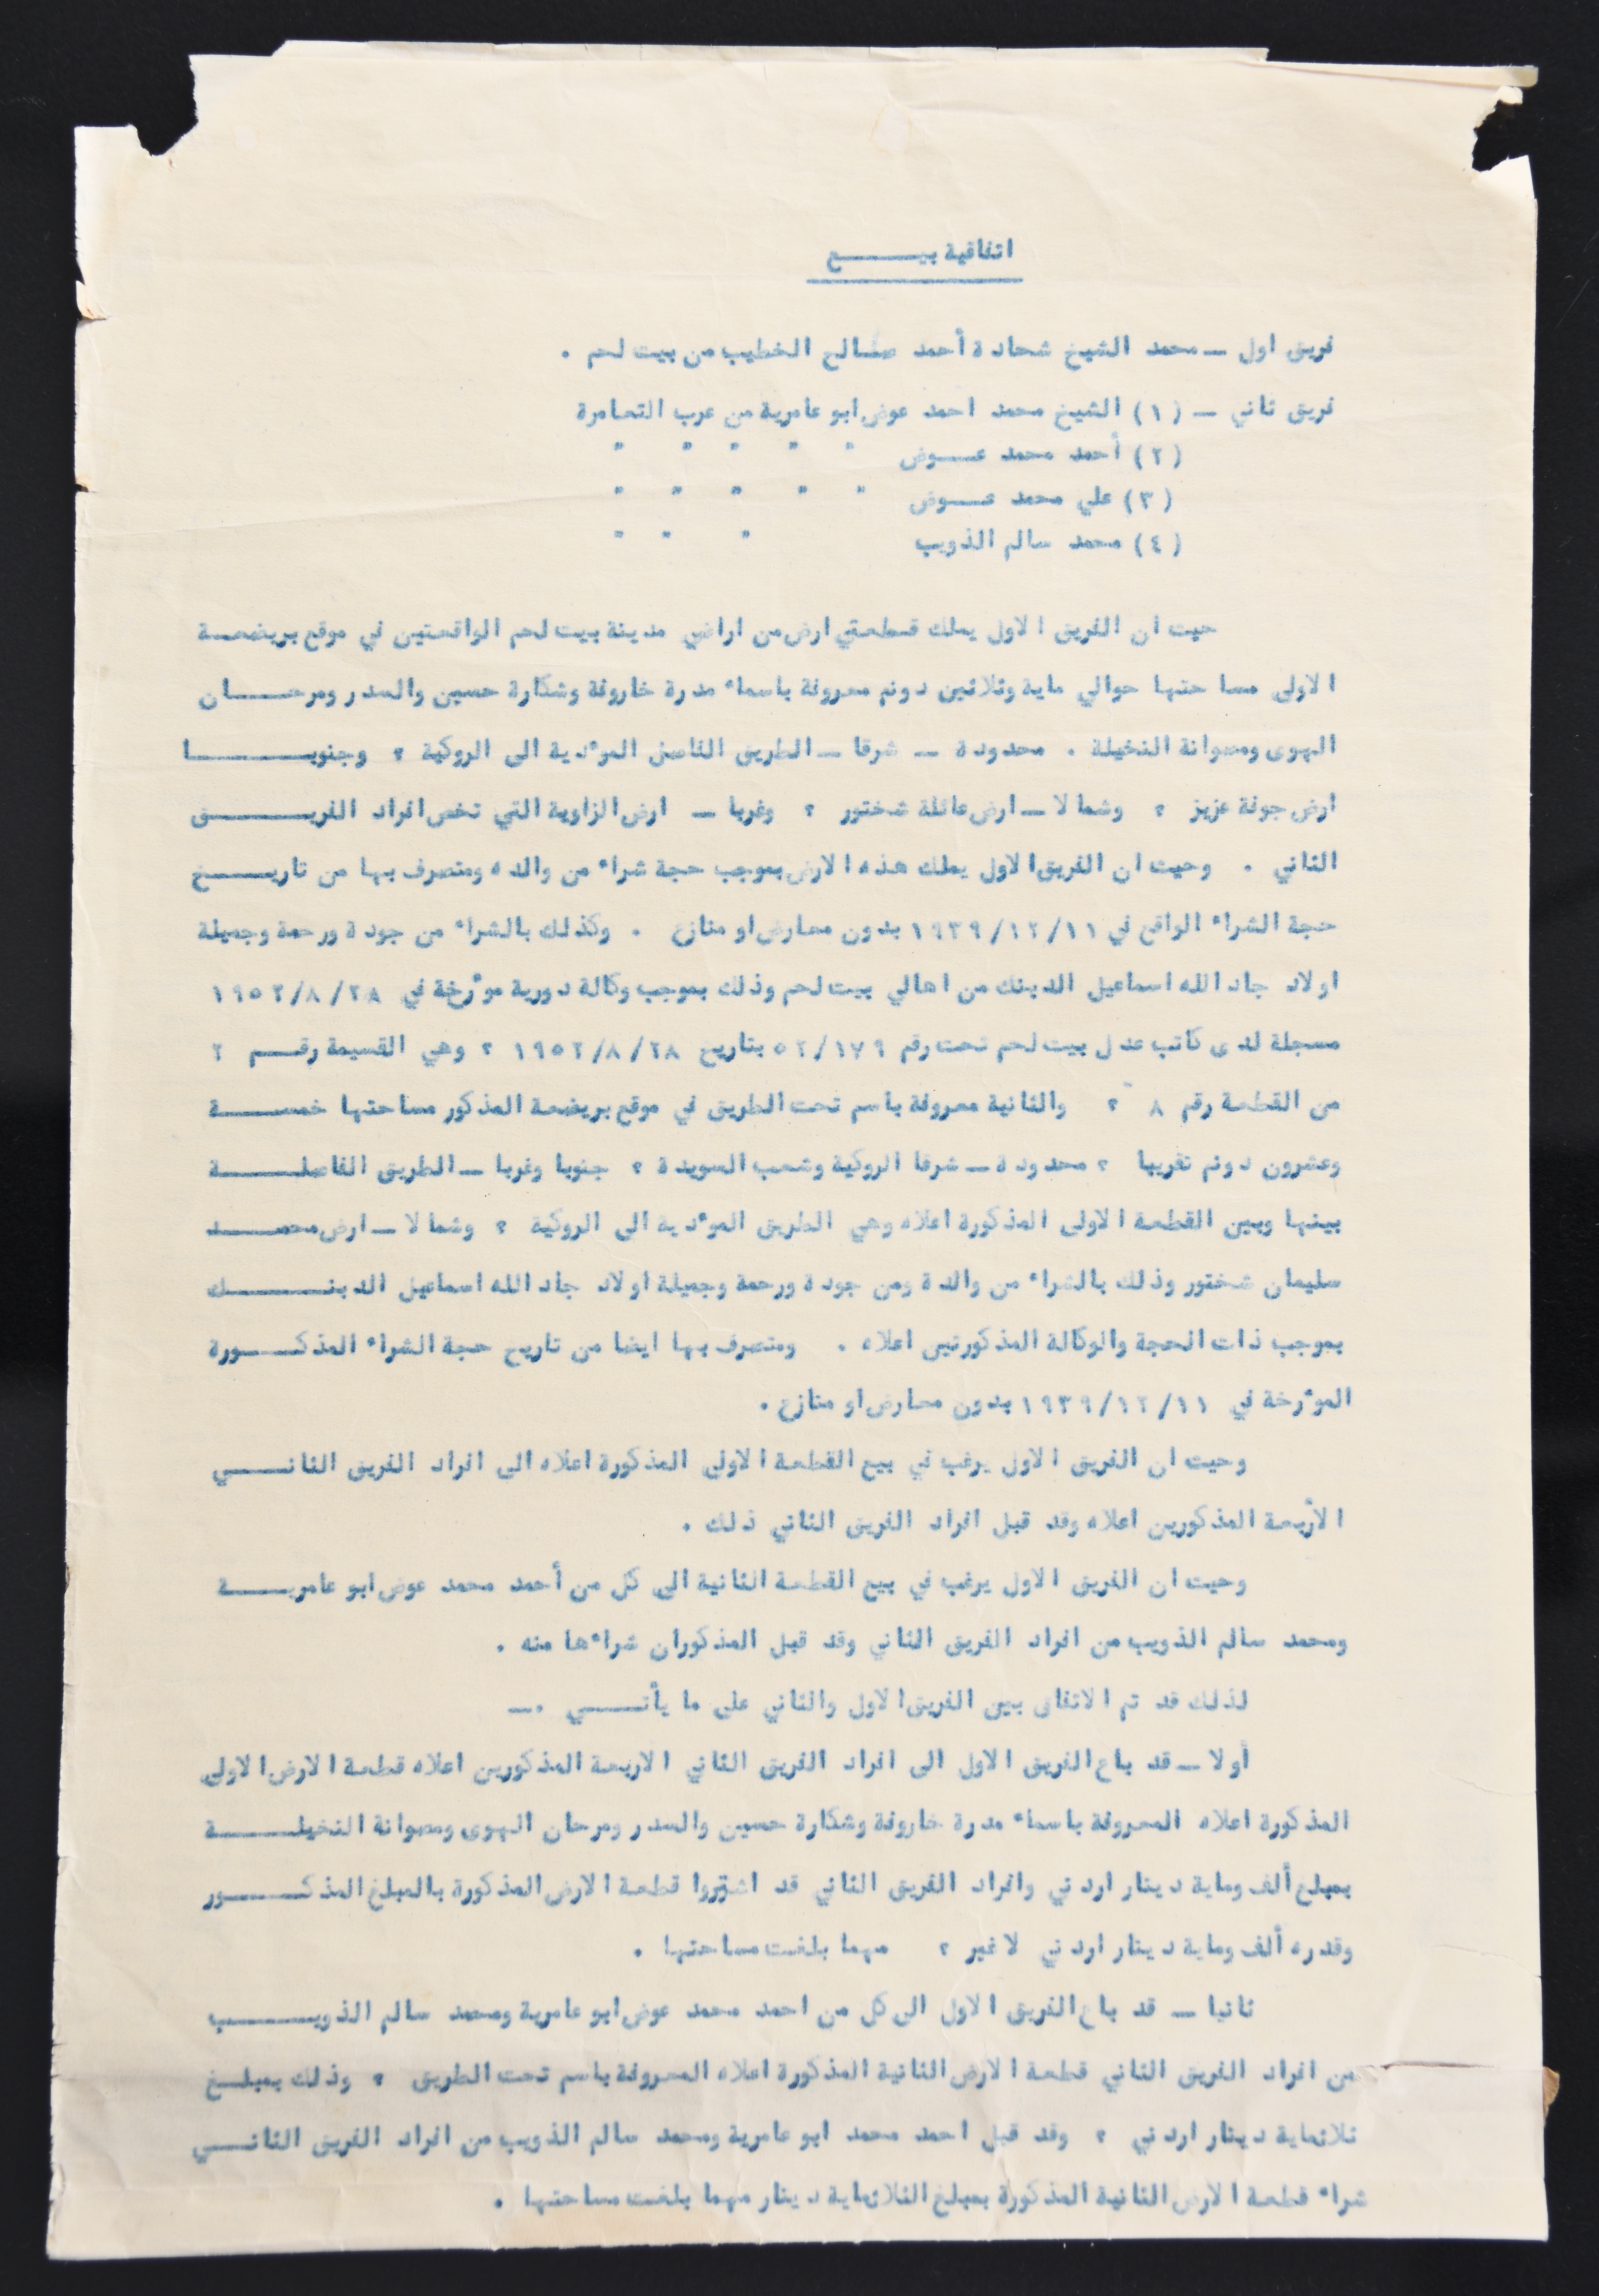 اتفاقية بيـــــــع
فريق اول ـ محمد الشيخ شحادة أحمد صالح الخطيب من بيت لحم .
فريق ثاني ـ (١) الشيخ محمد احمد عوض ابو عامرية من عرب التعامرة
(٢) أحمد محمد عـــوض " " " " "
(٣) علي محمد عـــوض " " " " "
(٤) محمد سالم الذويب " " "
حيث ان الفريق الاول يملك قطعتي ارض من اراضي مدينة بيت لحم الواقعتين في موقع بريضعـــة
الاولى مساحتها حوالي ماية وثلاثين دونم معروفة باسماء مدرة خاروفة وشكارة حسين والسدر ومرحـــــان
الهوى ومصوانة النخيلة . محدودة ـ شرقا ـ الطريق الفاصل الموءدية الى الروكية ؟ وجنوبـــــــــا
ارض جونة عزيز ؟ وشمالا ـ ارض عائلة شختور ؟ وغربا ـ ارض الزاوية التي تخص افراد الفريـــــــق
الثاني . وحيث ان الفريق الاول يملك هذه الارض بموجب حجة شراء من والده ومتصرف بها من تاريـــــخ
حجة الشراء الواقع في ١٩٣٩/١٢/١١ بدون معارض او منازع . وكذلك بالشراء من جودة ورحمة وجميلة
اولاد جاد الله اسماعيل الدبنك من اهالي بيت لحم وذلك بموجب وكالة دورية موءرخة في ١٩٥٢/٨/٢٨
مسجلة لدى كاتب عدل بيت لحم تحت رقم ٥٢/١٧٩ بتاريخ ١٩٥٢/٨/٢٨ ؟ وهي القسيمة رقـــم ٢
من القطعة رقم ٨ ؟ والثانية معروفة باسم تحت الطريق في موقع بريضعة المذكور مساحتها خمســـــة
وعشرون دونم تقريبا ؟ محدودة ـ شرقا الروكية وشعب السويدة ؟ جنوبا وغربا ـ الطريق الفاصلـــــــة
بينها وبين القطعة الاولى المذكورة اعلاه وهي الطريق الموءدية الى الروكية ؟ وشمالا ـ ارض محمـــــد
سليمان شختور وذلك بالشراء من والدة ومن جودة ورحمة وجميلة اولاد جاد الله اسماعيل الدبنـــــــك
بموجب ذات الحجة والوكالة المذكورتين اعلاه . ومتصرف بها ايضا من تاريخ حجة الشراء المذكـــــورة
الموءرخة في ١٩٣٩/١٢/١١ بدون معارض او منازع .
وحيث ان الفريق الاول يرغب في بيع القطعة الاولى المذكورة اعلاه الى افراد الفريق الثانــــي
الأربعة المذكورين اعلاه وقد قبل افراد الفريق الثاني ذلك .
وحيث ان الفريق الاول يرغب في بيع القطعة الثانية الى كل من أحمد محمد عوض ابو عامريـــــة
ومحمد سالم الذويب من افراد الفريق الثاني وقد قبل المذكوران شراءها منه .
لذلك قد تم الاتفاق بين الفريق الاول والثاني على ما يأتـــــي .ـ
أولا ـ قد باع الفريق الاول الى افراد الفريق الثاني الاربعة المذكورين اعلاه قطعة الارض الاولى
المذكورة اعلاه المعروفة باسماء مدرة خاروفة وشكارة حسين والسدر ومرحان الهوى ومصوانة النخيلـــــة
بمبلغ ألف وماية دينار اردني وافراد الفريق الثاني قد اشتروا قطعة الارض المذكورة بالمبلغ المذكـــــــور
وقدره ألف وماية دينار اردني لا غير ؟ مهما بلغت مساحتها .
ثانيا ـ قد باع الفريق الاول الى كل من احمد محمد عوض ابو عامرية ومحمد سالم الذويـــــــب
من افراد الفريق الثاني قطعة الارض الثانية المذكورة اعلاه المعروفة باسم تحت الطريق ؟ وذلك بمبلـــغ
ثلاثماية دينار اردني ؟ وقد قبل احمد محمد ابو عامرية ومحمد سالم الذويب من افراد الفريق الثانــــي
شراء قطعة الارض الثانية المذكورة بمبلغ الثلاثماية دينار مهما بلغت مساحتها .